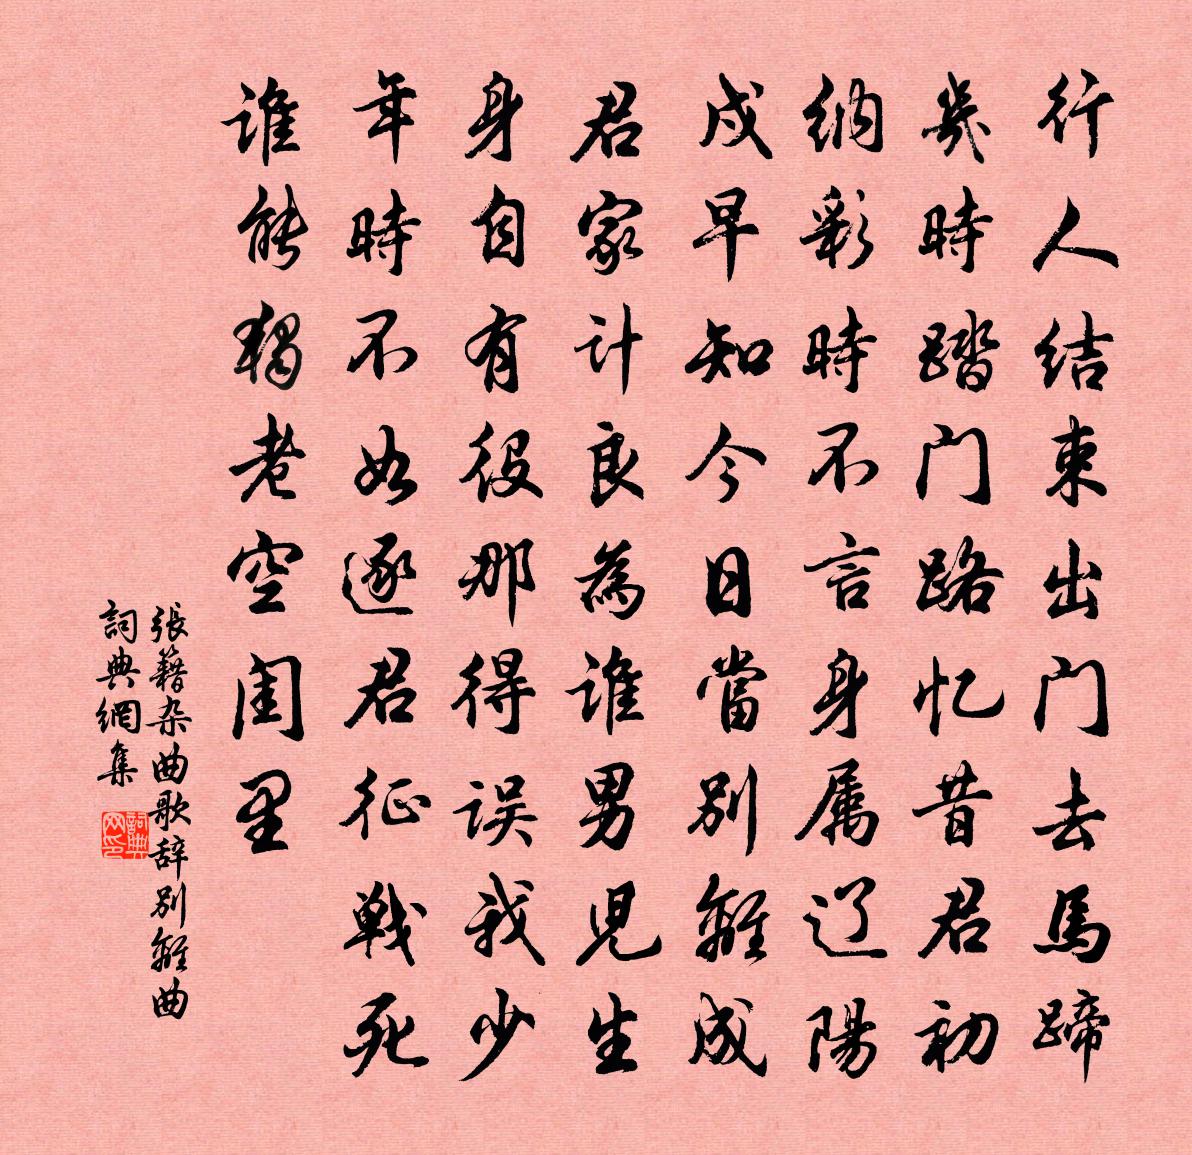 行人结束出门去馬蹄
幾時踏门路忆昔君初
纳彩時不言身属辽陽
戍早知今日當别離成
君家计良為谁男児生
身自有役那得误我少
年時不如逐君征戦死
谁能独老空闺里
張籍杂曲歌辞别離曲
詞典網集
詞典网印